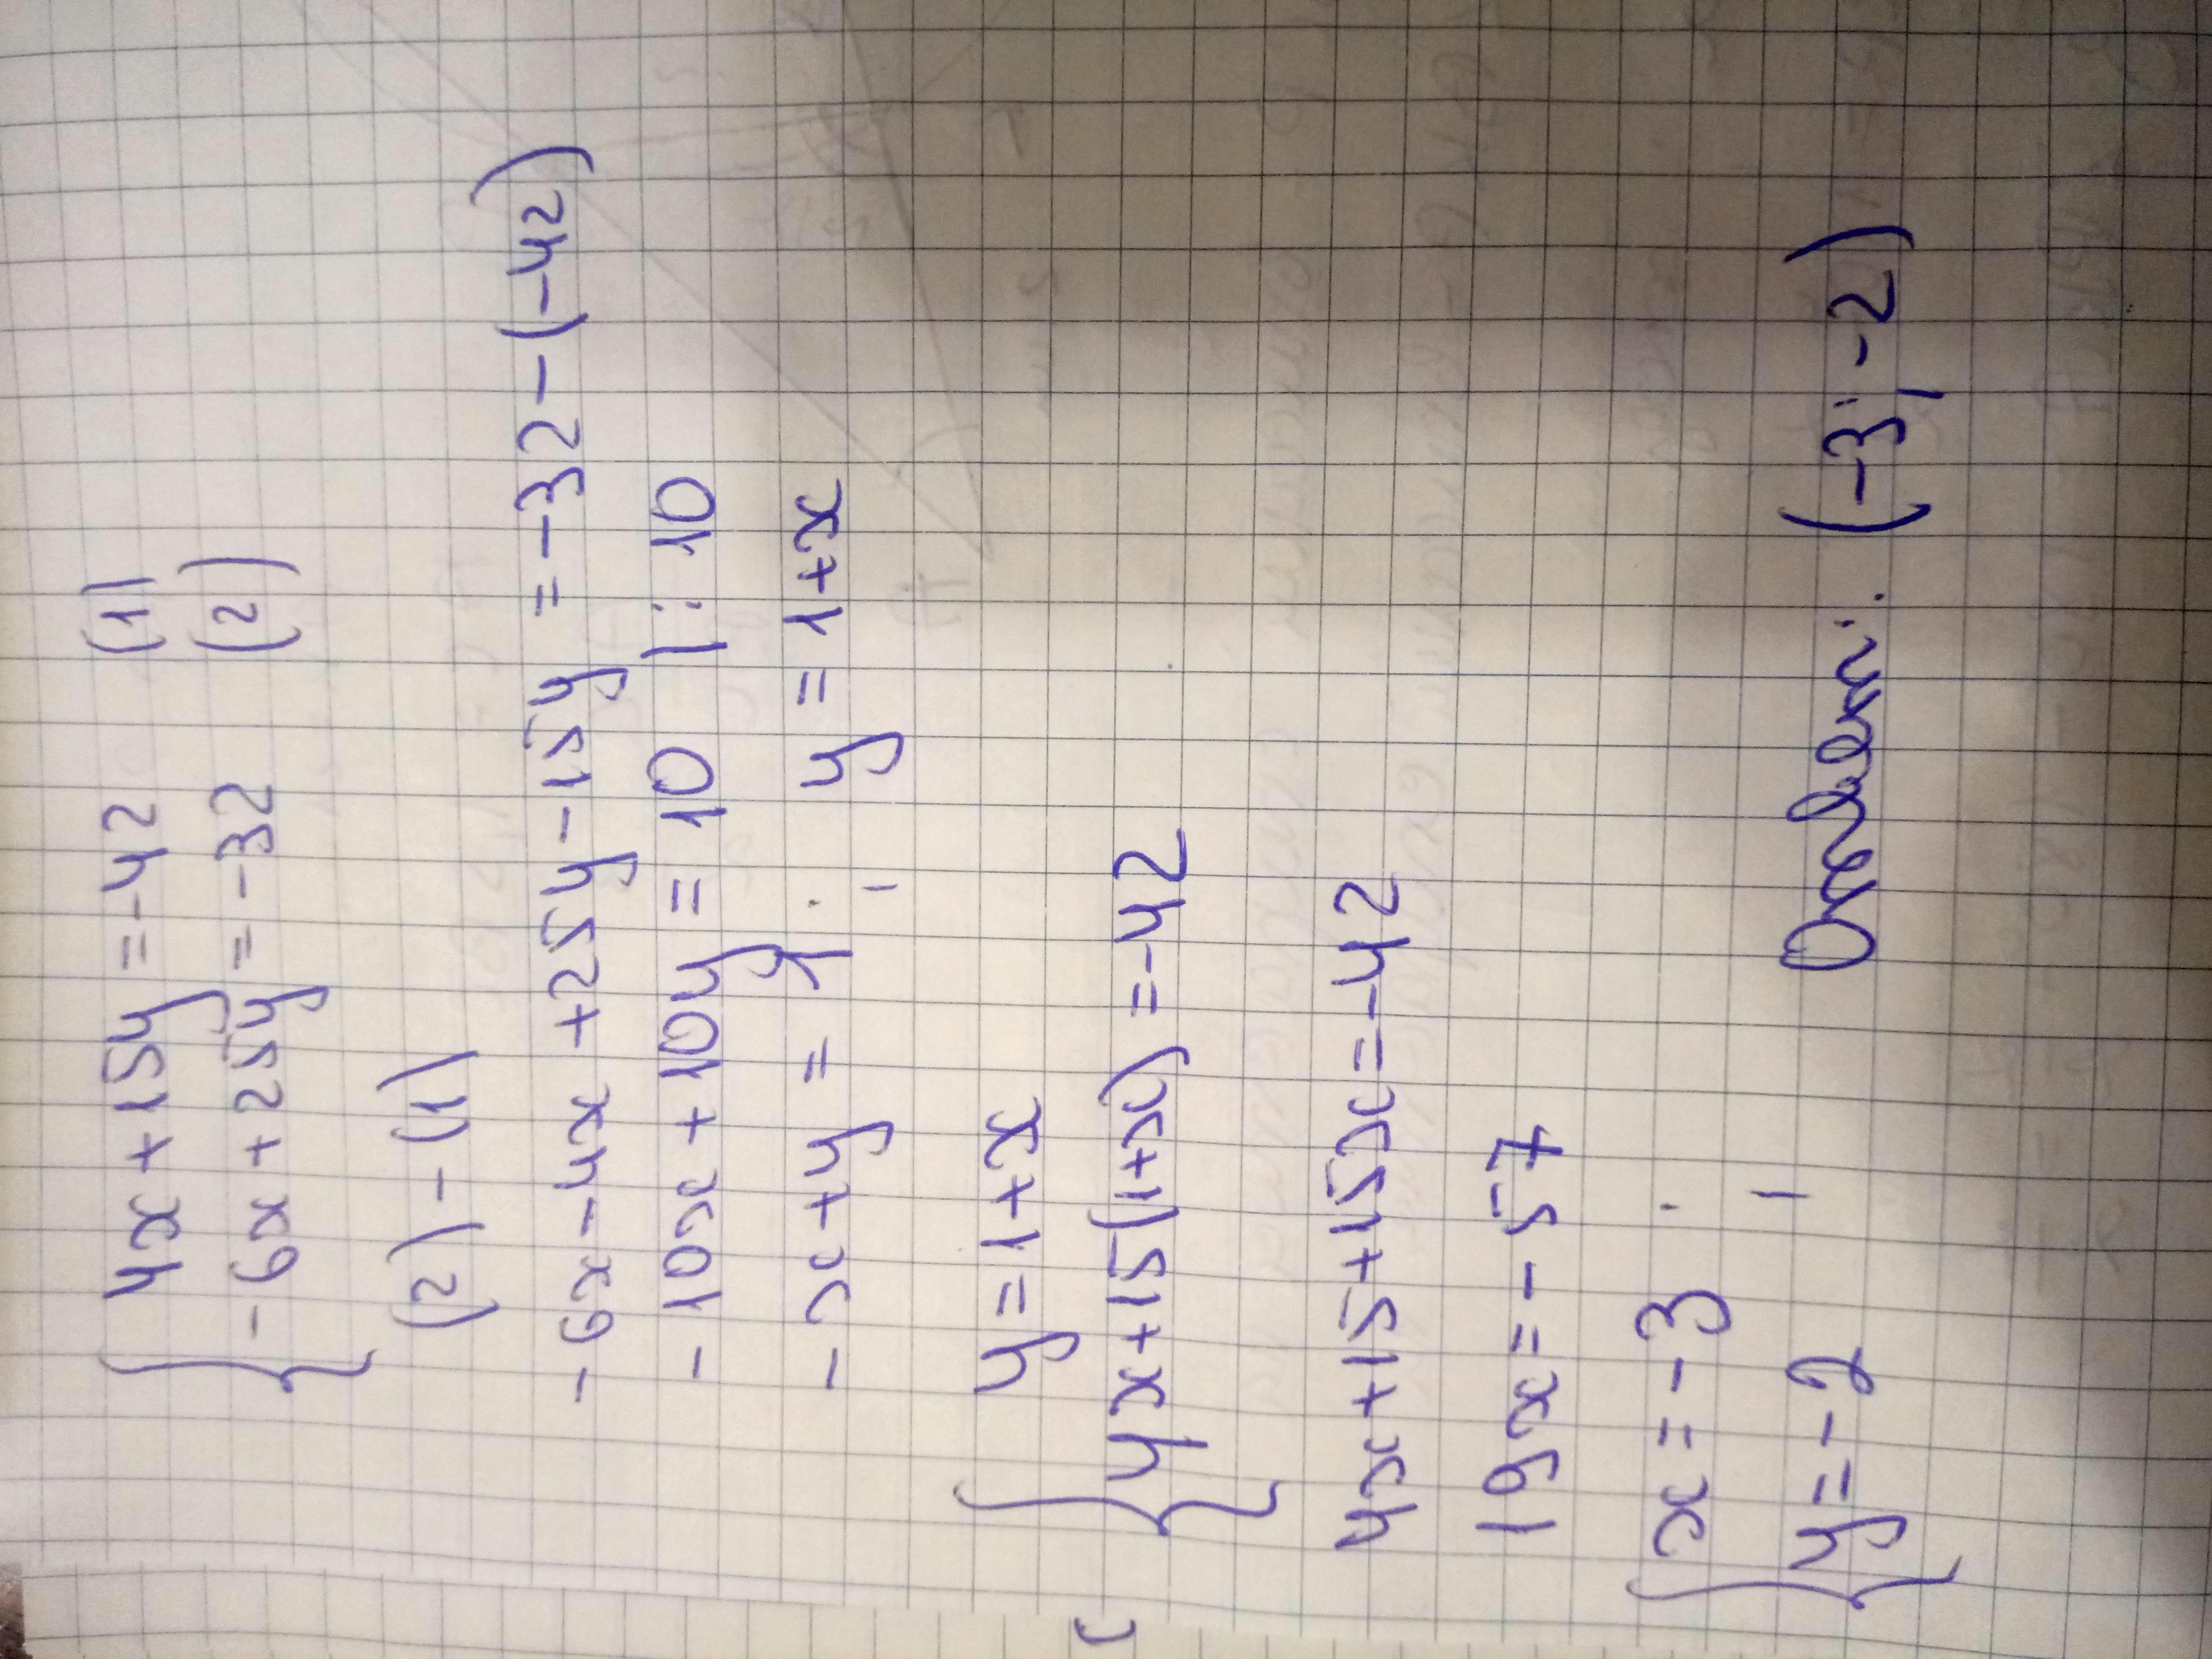 { 4x + 15y = -42 (1)
-6x + 25y = -32 (2)
(2) - (1)
-6x - 4x + 25y - 15y = -32 - (-42)
-10x + 10y = 10 |: 10
-x + y = 1 ; y = 1+x
{ y = 1+x
4x + 15(1+x) = -42
4x + 15 + 15x = -42
19x = -57
{ x = -3 ;
y = -2
Ответ: (-3; -2)